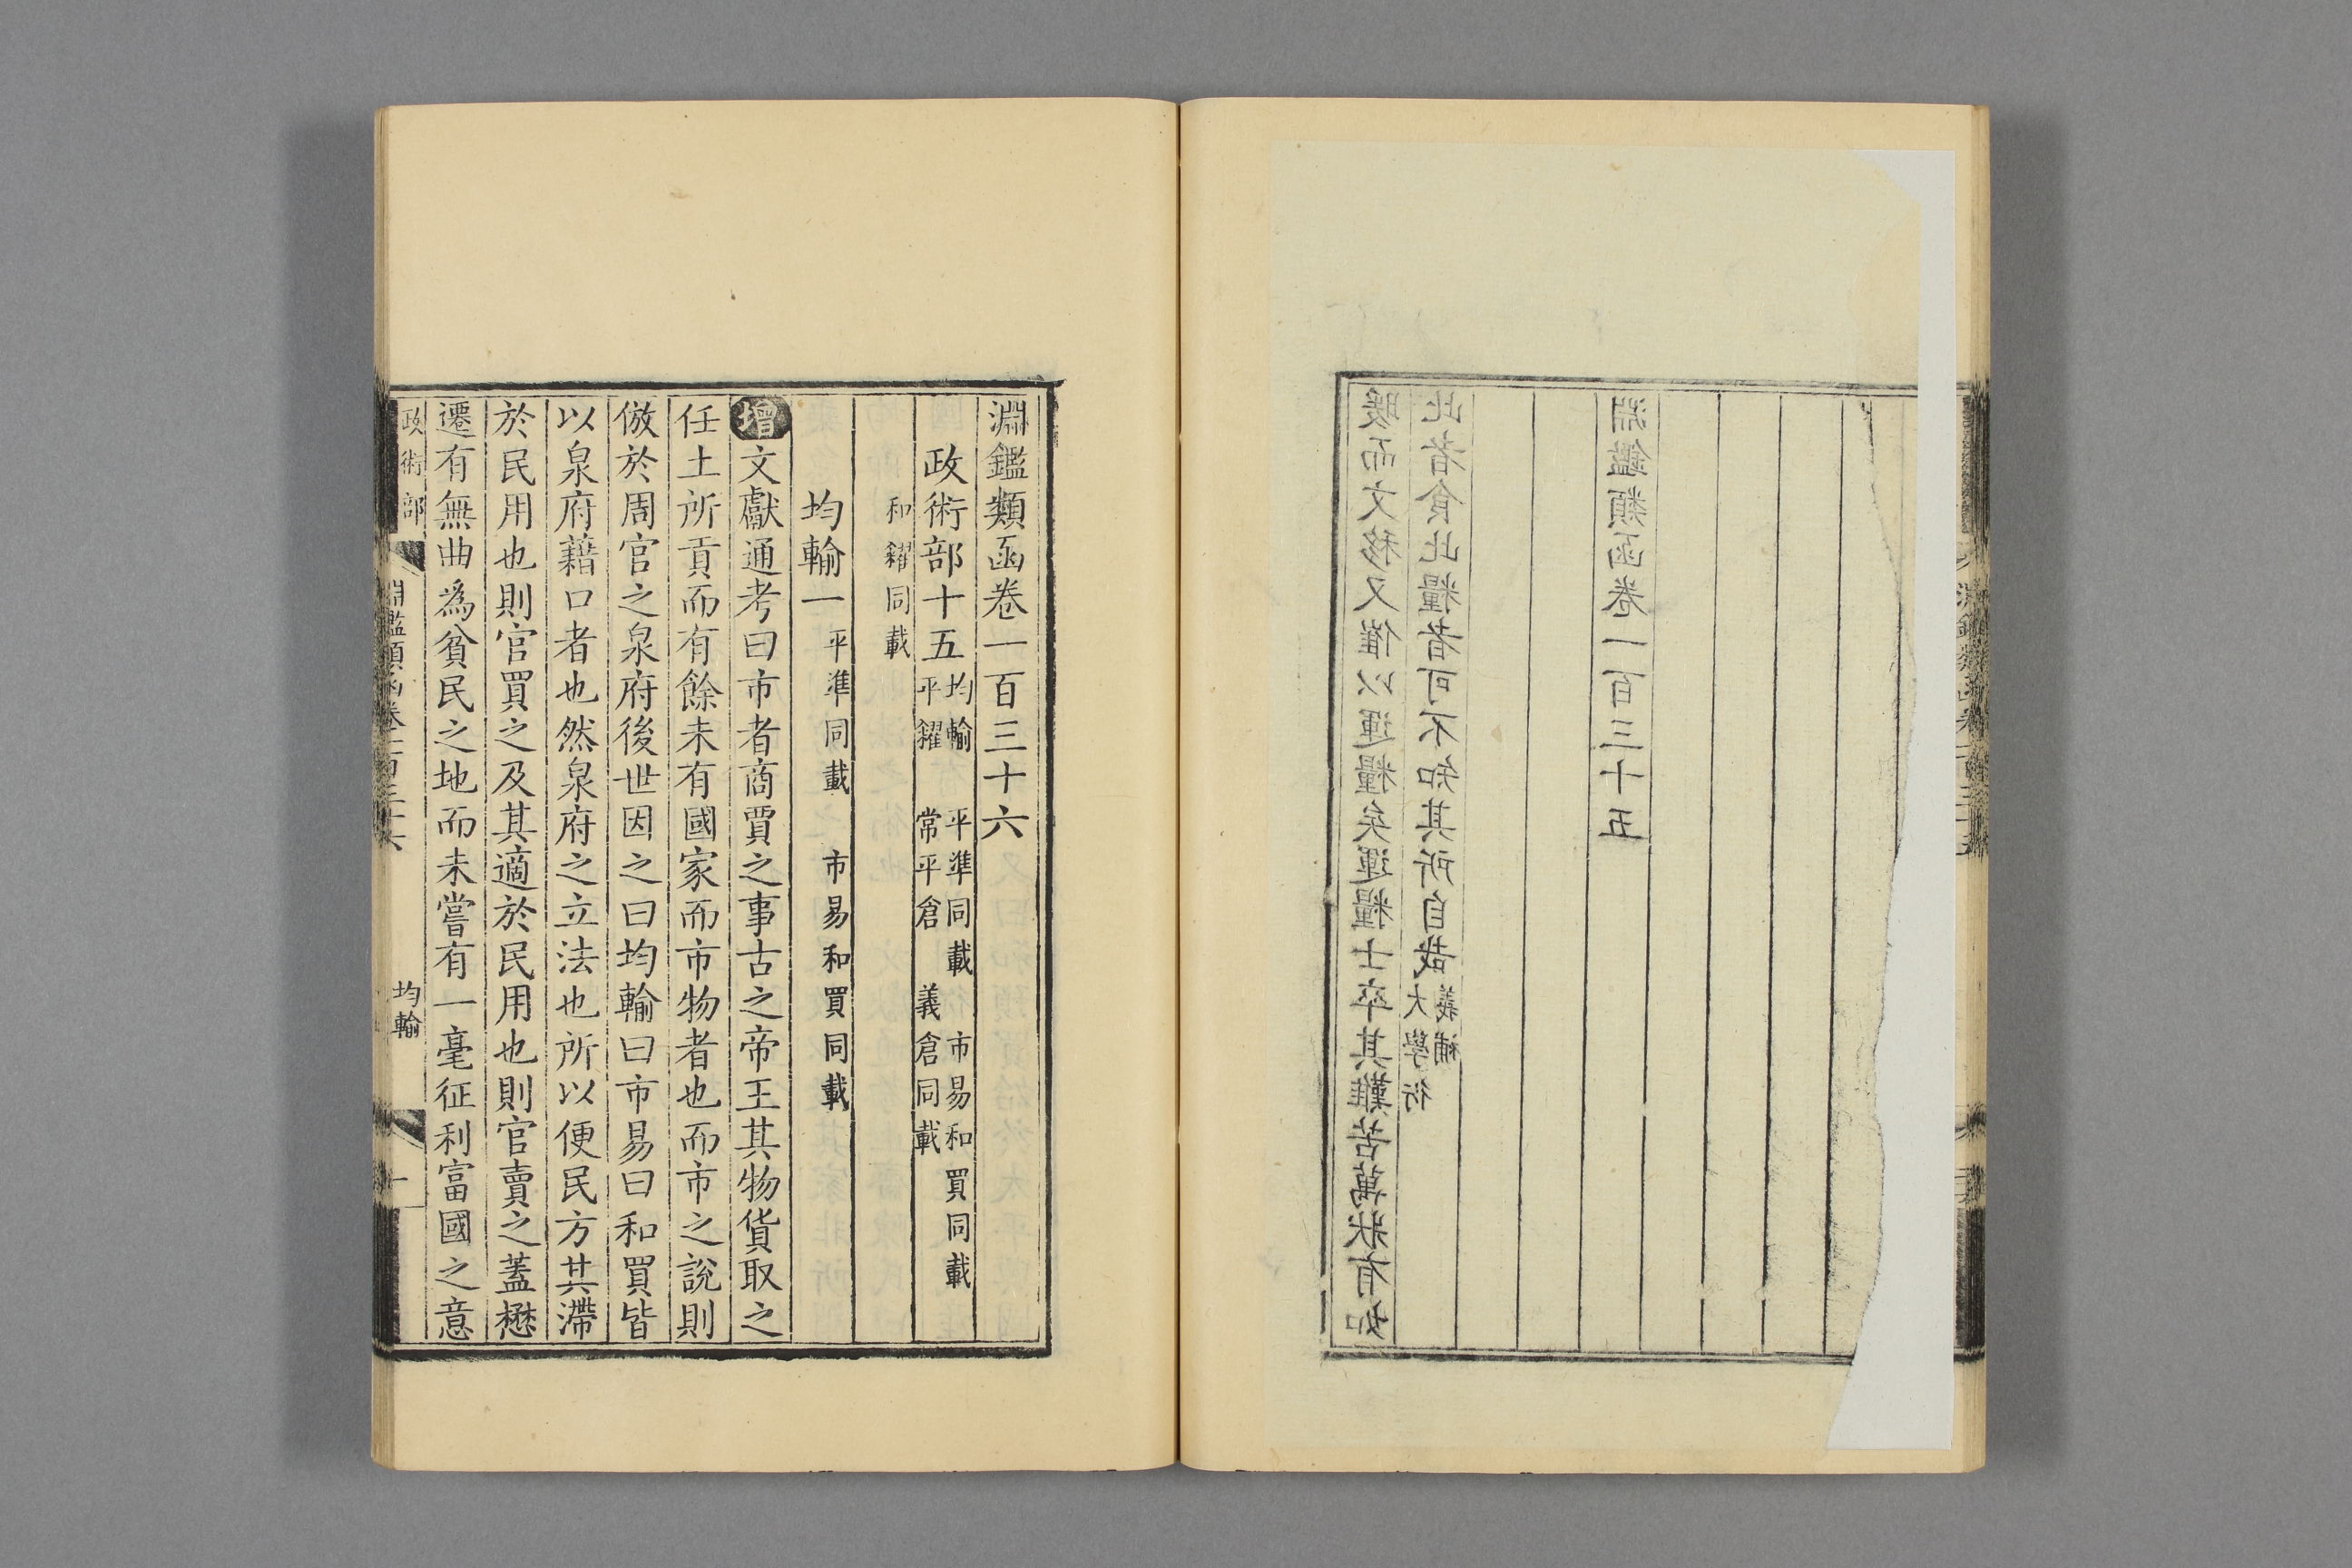 暖而文移又催以運糧矣運糧士卒其難苦萬狀有如
此者食此糧者可不知其所自哉大學衍義補
淵鑑類函卷一百三十五
淵鑑類函卷一百三十六
政術部十五 均輸 平準同載 市易和買同載
平糴 常平倉 義倉同載
和糴同載
均輸一 平準同載 市易和買同載
增文獻通考曰市者商賈之事古之帝王其物貨取之
任土所貢而有餘未有國家而市物者也而市之說則
倣於周官之泉府後世因之曰均輸曰市易曰和買皆
以泉府藉口者也然泉府之立法也所以便民方其滯
於民用也則官買之及其適於民用也則官賣之蓋懋
遷有無曲為貧民之地而未嘗有一毫征利富國之意
政術部
淵鑑類函卷一百三十六
均輸
一